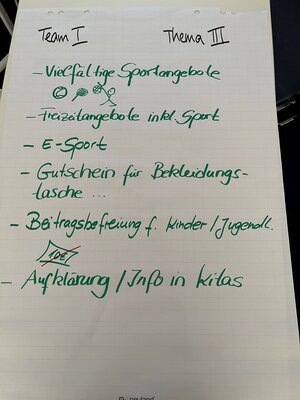 Team I Thema III
- Vielfältige Sportangebote
- Freizeitangebote inkl. Sport
- E-Sport
- Gutschein für Bekleidungs-
tasche ...
- Beitragsbefreiung f. Kinder / Jugendl.
10€
- Aufklärung / Info in Kitas